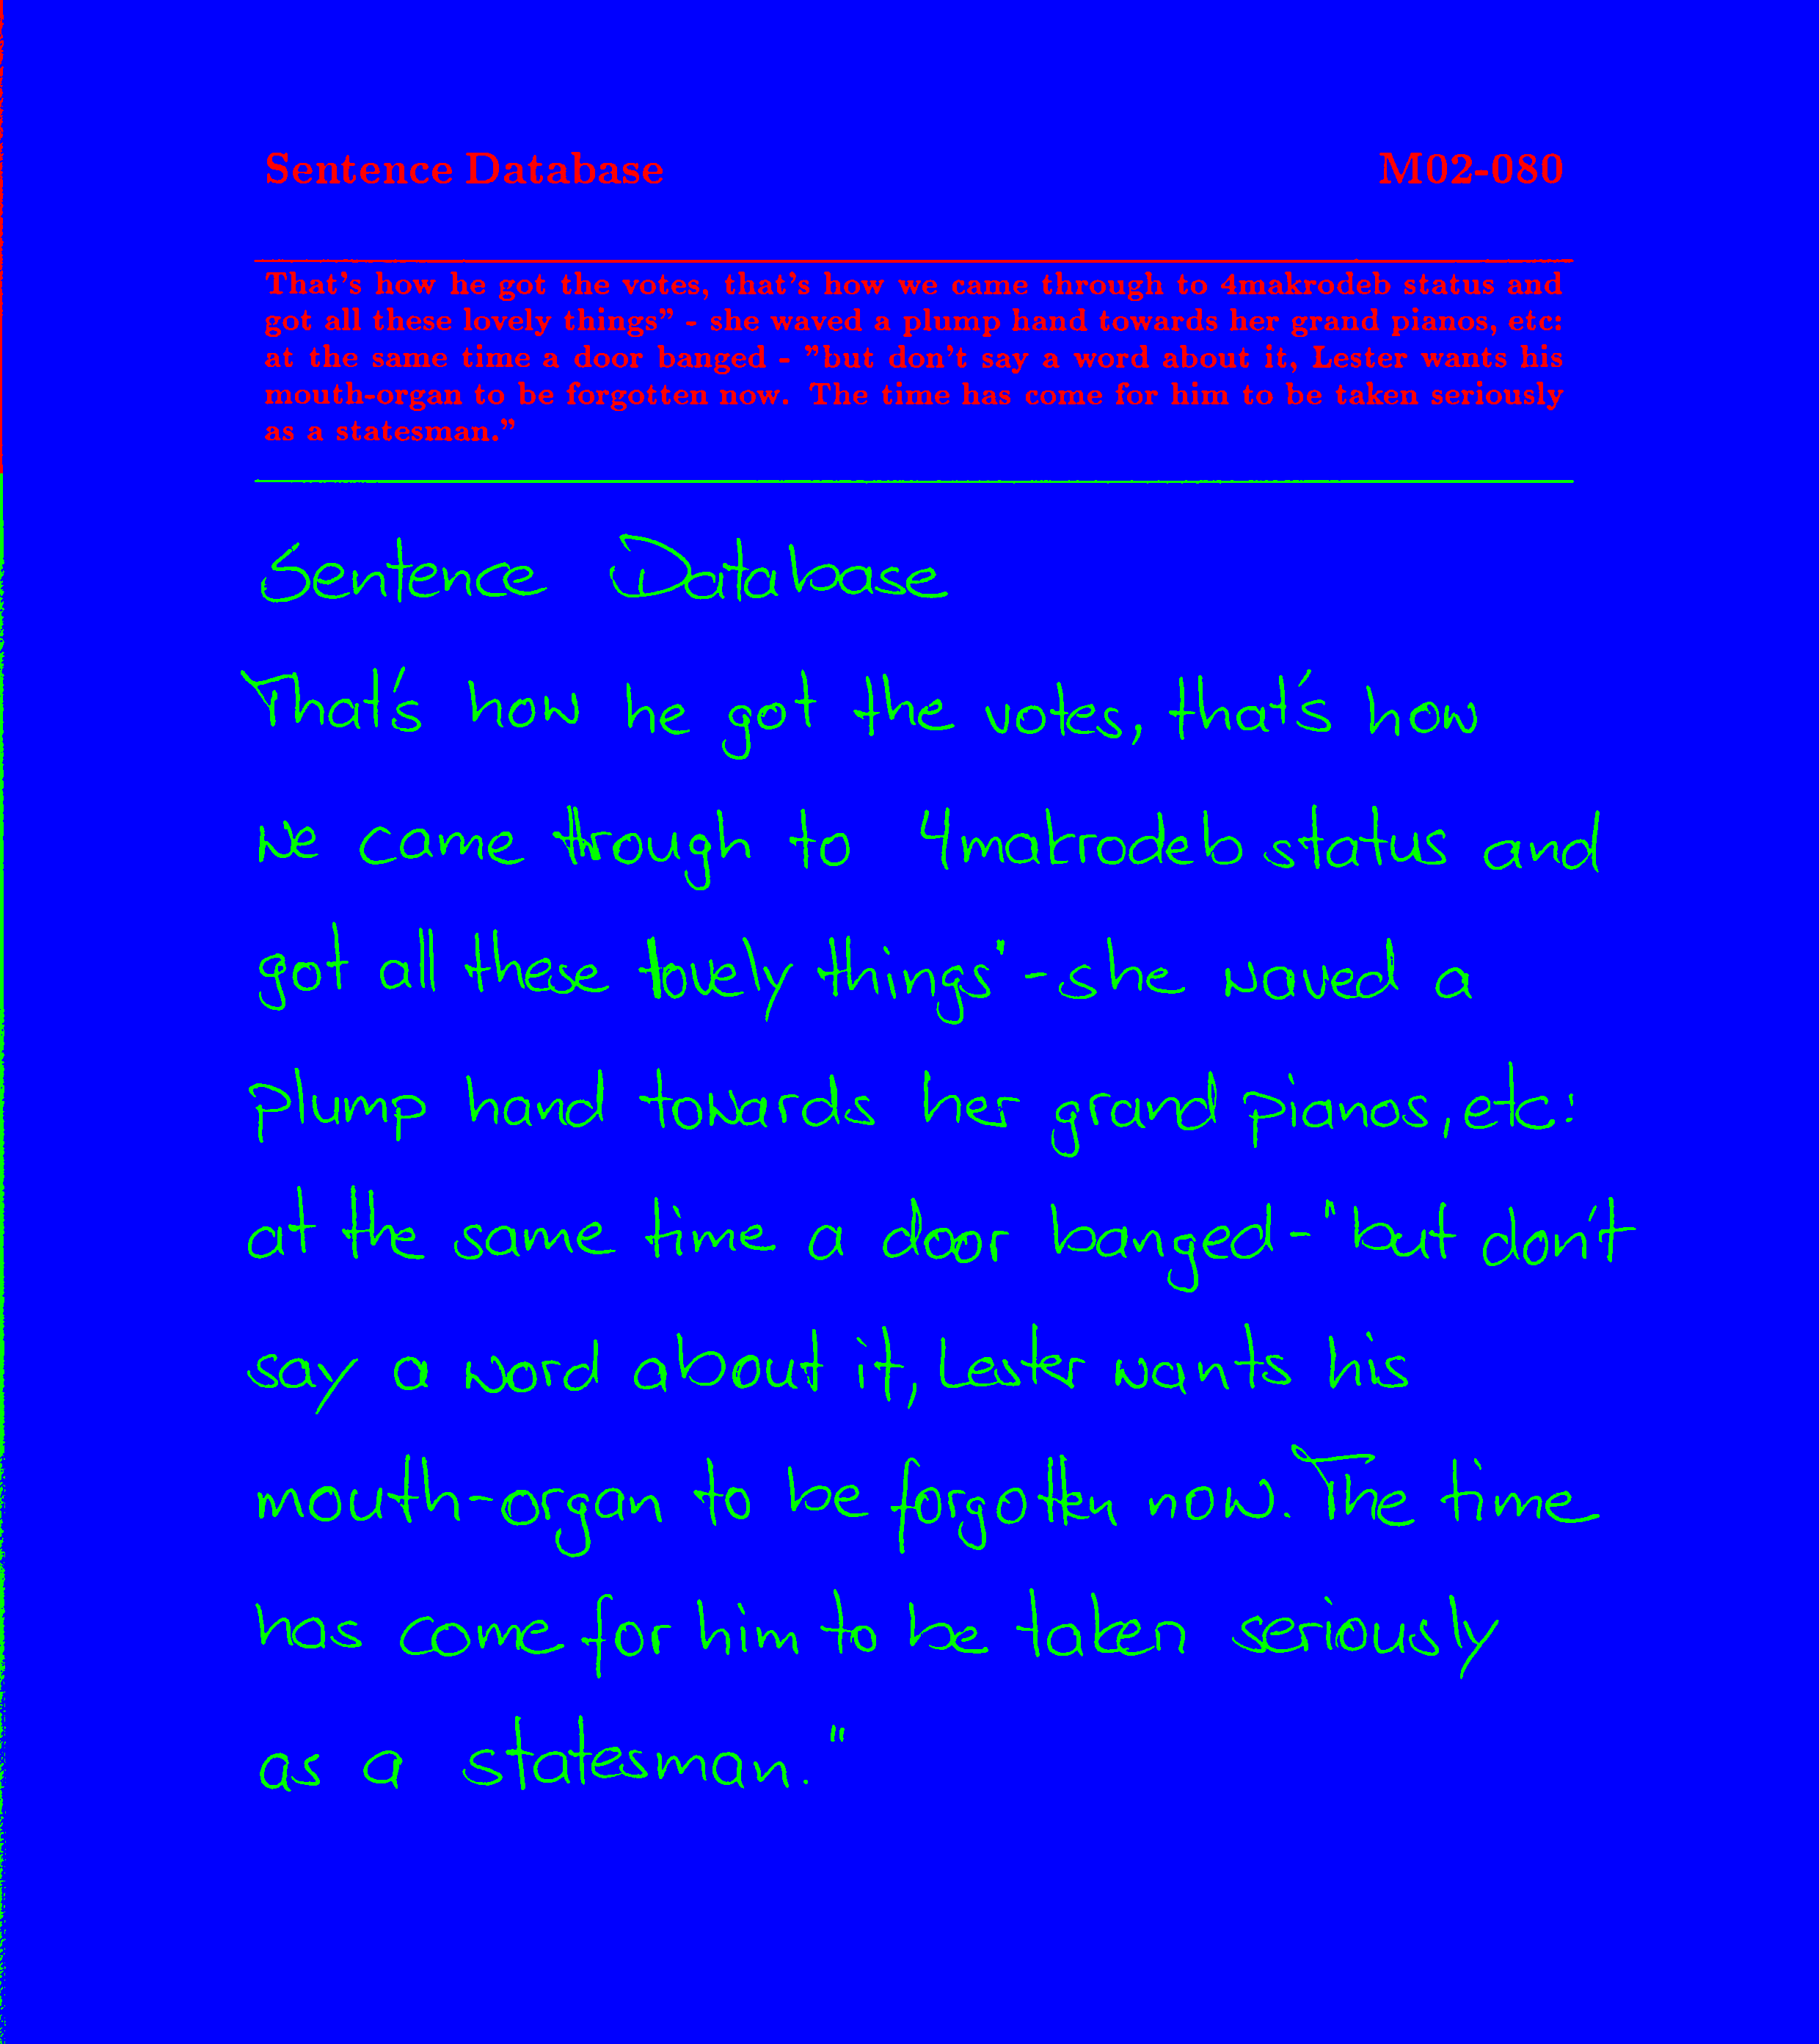 Sentence Database M02-080
That's how he got the votes, that's how we came through to 4makrodeb status and
got all these lovely things" - she waved a plump hand towards her grand pianos, etc:
at the same time a door banged - "but don't say a word about it, Lester wants his
mouth-organ to be forgotten now. The time has come for him to be taken seriously
as a statesman."
Sentence Database
That's how he got the votes, that's how
we came through to 4makrodeb status and
got all these lovely things" - she waved a
plump hand towards her grand pianos, etc:
at the same time a door banged - "but don't
say a word about it, Lester wants his
mouth-organ to be forgotten now. The time
has come for him to be taken seriously
as a statesman."